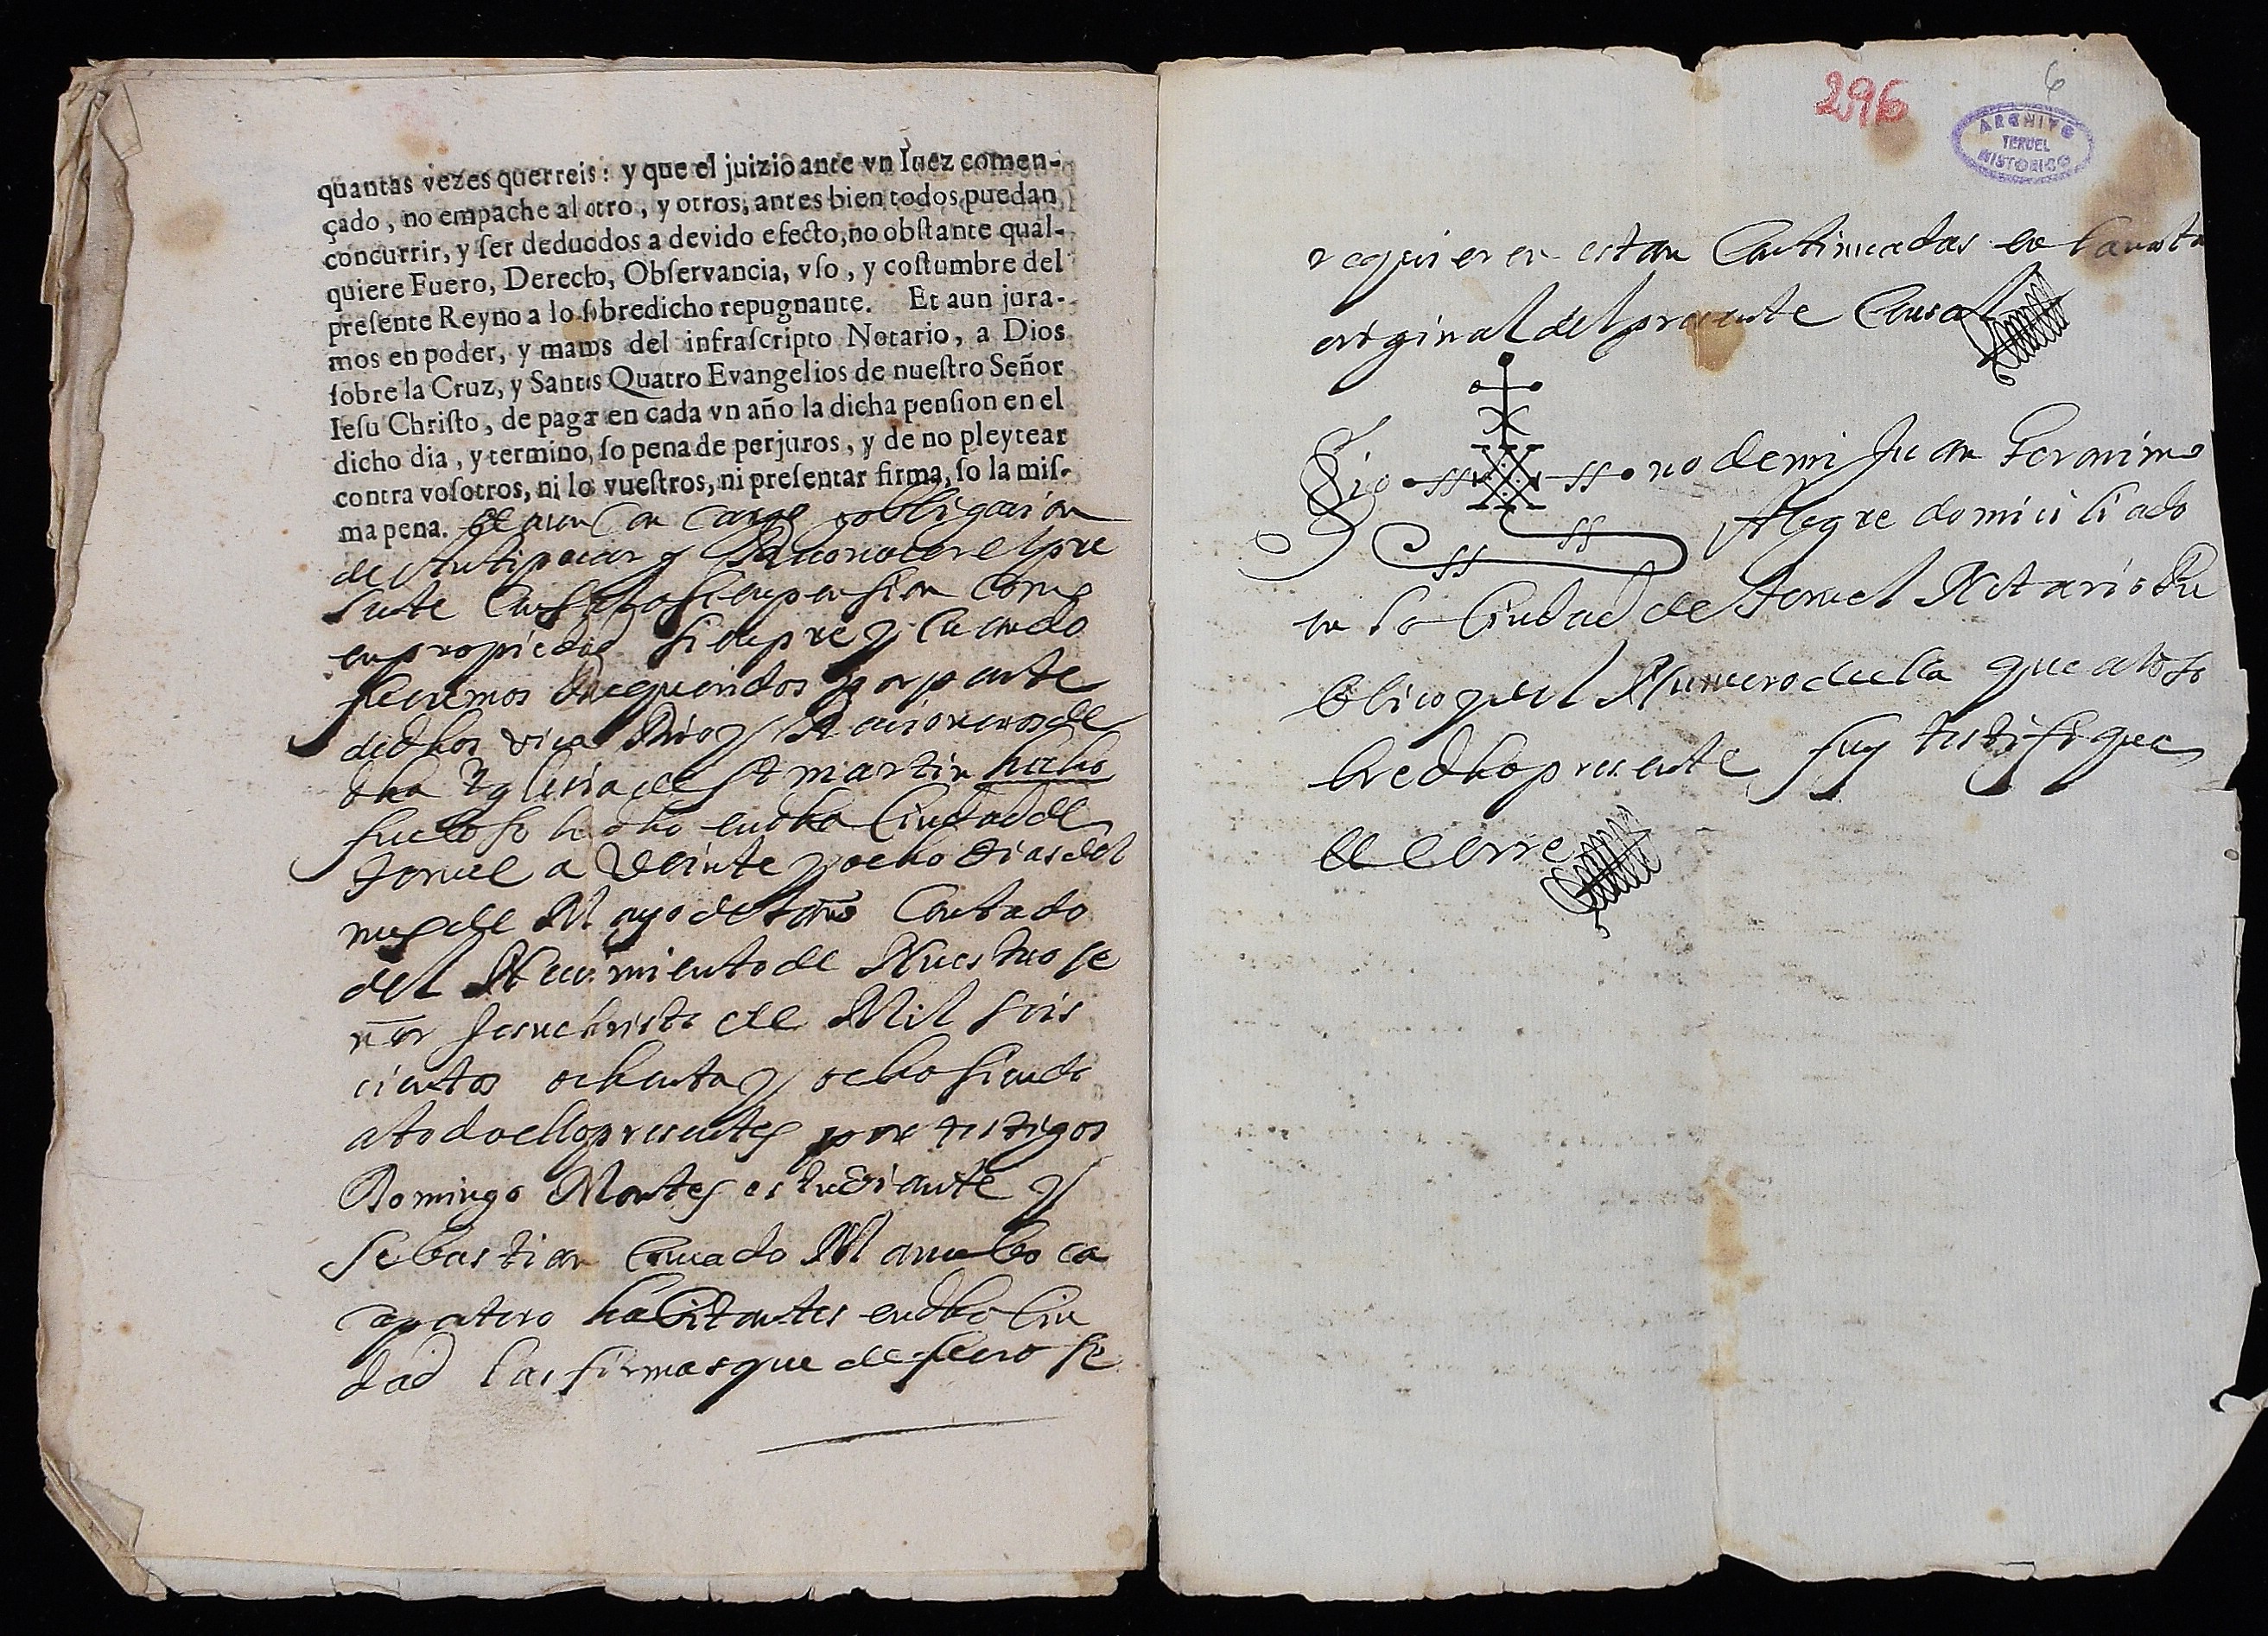 quantas vezes querreis: y que el juizio ante vn Iuez comen-
çado, no empache al otro, y otros, antes bien todos puedan
concurrir, y ser deducidos a devido efecto, no obstante qual-
quiere Fuero, Derecho, Observancia, vso, y costumbre del
presente Reyno a lo sobredicho repugnante. Et aun jura-
mos en poder, y manos del infrascripto Notario, a Dios
sobre la Cruz, y Santos Quatro Evangelios de nuestro Señor
Iesu Christo, de pagar en cada vn año la dicha pension en el
dicho dia, y termino, so pena de perjuros, y de no pleytear
contra vosotros, ni lo vuestros, ni presentar firma, so la mis-
ma pena. Et aun con cargo y obligacion
de Antipocar y Reconocer el pre
sente Censal assi en pension como
en propiedad siempre y cuando
seremos Requeridos por parte
de dhos Racioneros de
dha Yglesia de St martin
fue lo so dho en dha Ciudad de
Teruel a Veinte y ocho dias del
mes de Mayo del año Contado
del Nacimiento de Nuestro se
ñor Jesuchristo de Mil seis
cientos ochenta y ocho siendo
a todo ello presentes por testigos
Domingo Montes estudiante y
Sebastian Manzebo ca
apatero habitantes en dha Ciu
dad las firmas que de fuero se
296
6
ARCHIVO
TERUEL
HISTORICO
requieren estan Continuadas en la nota
original del presente Censal
Sig no de mi Juan Geronimo
Alegre domiciliado
en la Ciudad de Teruel Notario Pu
blico y del Numero de ella que a lo so
bredho presente fuy testifique
et cerre